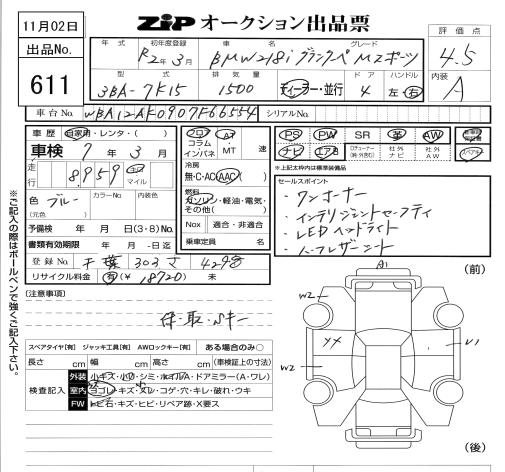 11月02日 ZIP オークション出品票 評価点
出品No. 611
年式 初年度登録 車名 グレード
R2年3月 BMW218i グランクーペ Mスポーツ 4.5
型式 排気量 ドア ハンドル 内装
3BA-7K15 1500 ディーラー・並行 4 左 右 A
車台No. WBA12AF0907F66554 シリアルNo.
車歴 自家用・レンタ・( )
車検 7年3月
走行 8,959 キロ マイル
色 ブルー (元色) カラーNo. 内装色
予備検 年 月 日(3・8)No.
書類有効期限 年 月 ・ 日迄
登録No. 千葉 303 さ
リサイクル料金 有(¥ 18720) 未
フロア コラム インパネ AT ・MT 速
冷房
無・C・AC AAC
燃料
ガソリン・軽油・電気・その他( )
Nox 適合・非適合
乗車定員 名
PS PW SR 革 AW
ナビ エアB 社外ナビ 社外AW
*上記太枠内は標準装備品
セールスポイント
・ワンオーナー
・インテリジェントセーフティ
・LEDヘッドライト
・ハーフレザーシート
※ご記入の際はボールペンで強くご記入下さい。
[注意事項]
保・取・Sキー
スペアタイヤ[有] ジャッキ工具[有] AWロックキー[有] ある場合のみ○
長さ cm 幅 cm 高さ cm (車検証上の寸法)
検査記入
外装 小キズ・小凹・シミ・ホイルA・ドアミラー(A・ワレ)
室内 ヨゴレ・キズ・スレ・コゲ・穴・キレ・破れ・ウキ
FW トビ石・キズ・ヒビ・リペア跡・X要ス
(前)
A1
W2
XX
U1
W2
(後)